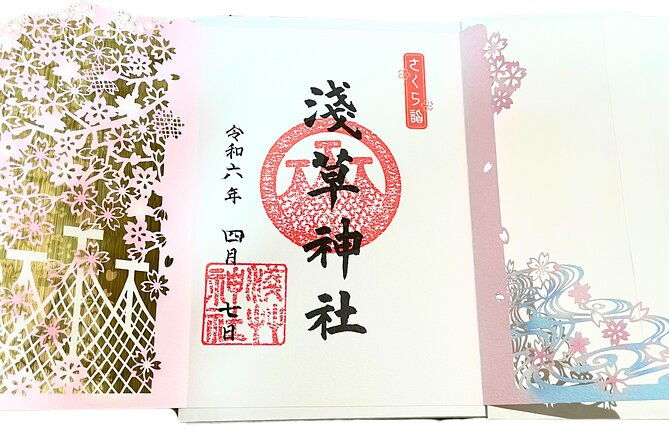 さくら詣
淺草神社
令和六年 四月 七日
淺草
神社